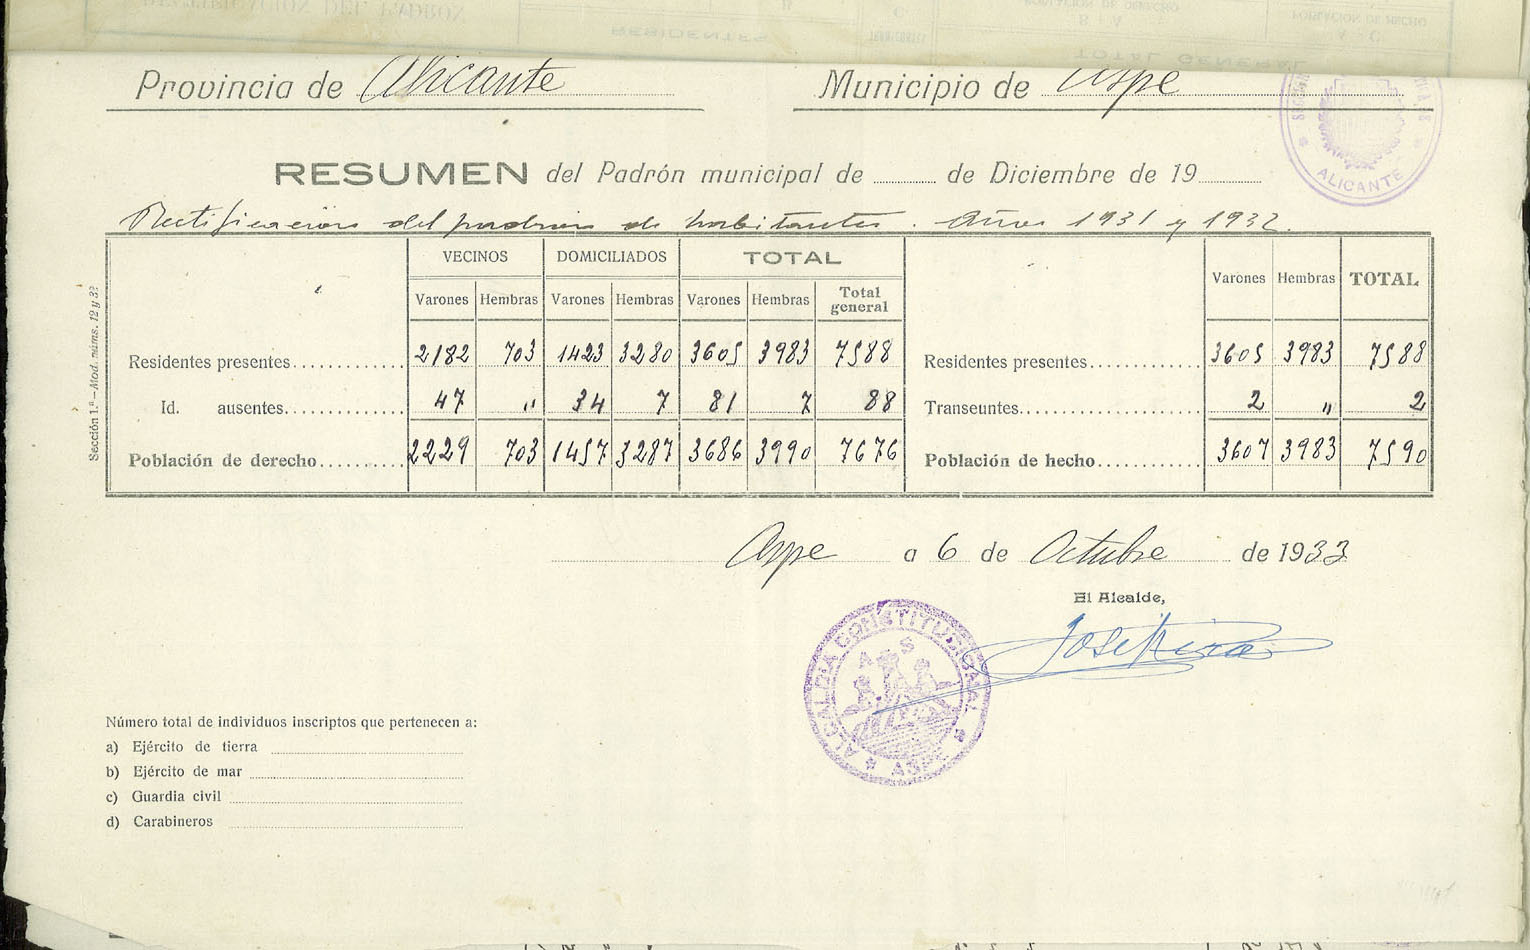 Provincia de Alicante Municipio de Aspe
RESUMEN del Padrón municipal de de Diciembre de 19
Rectificación del padrón de habitantes. Años 1931 y 1932.
VECINOS DOMICILIADOS TOTAL
Varones Hembras Varones Hembras Varones Hembras Total general
Varones Hembras TOTAL
Residentes presentes 2182 703 1423 3280 3605 3983 7588
Residentes presentes 3605 3983 7588
Id. ausentes 47 " 34 7 81 7 88
Transeuntes 2 " 2
Población de derecho 2229 703 1457 3287 3686 3990 7676
Población de hecho 3607 3983 7590
Sección 1.ª—Mod. núms. 12 y 32
Aspe a 6 de Octubre de 1933
El Alcalde,
ALCALDIA CONSTITUCIONAL
ASPE
ALICANTE
Número total de individuos inscriptos que pertenecen a:
a) Ejército de tierra
b) Ejército de mar
c) Guardia civil
d) Carabineros